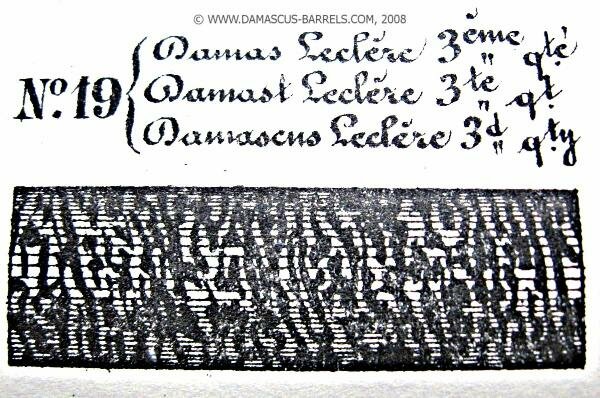 © WWW.DAMASCUS-BARRELS.COM, 2008
Nº. 19
Damas Leclére 3ème qté
Damast Leclére 3te qt
Damascus Leclére 3d qty